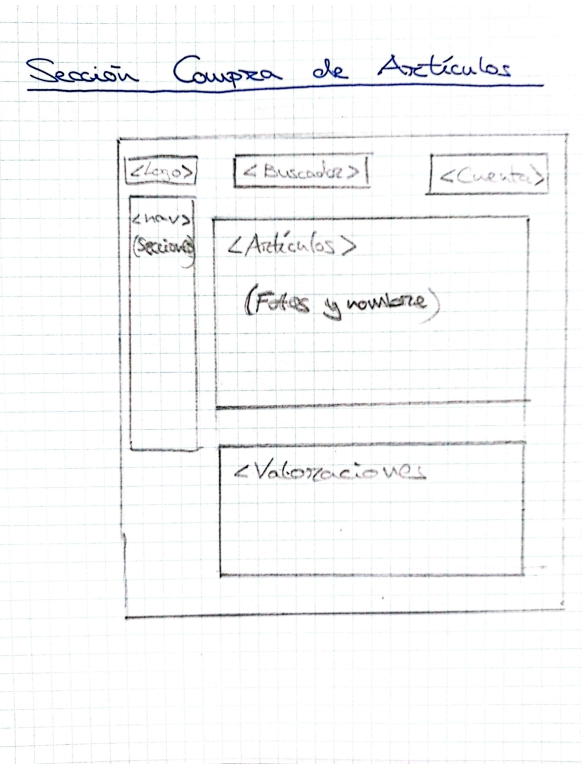 Sección Compra de Artículos
<Logo> <Buscador> <Cuenta>
<nav>
(Secciones)
<Artículos>
(Fotos y nombre)
<Valoraciones